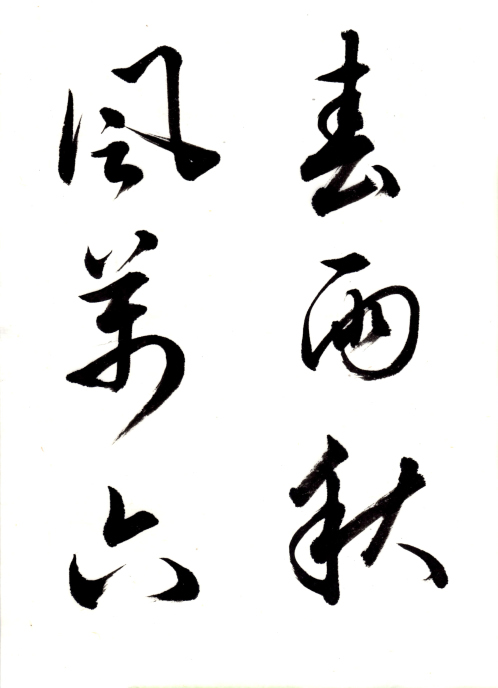 春雨秋
風萬六